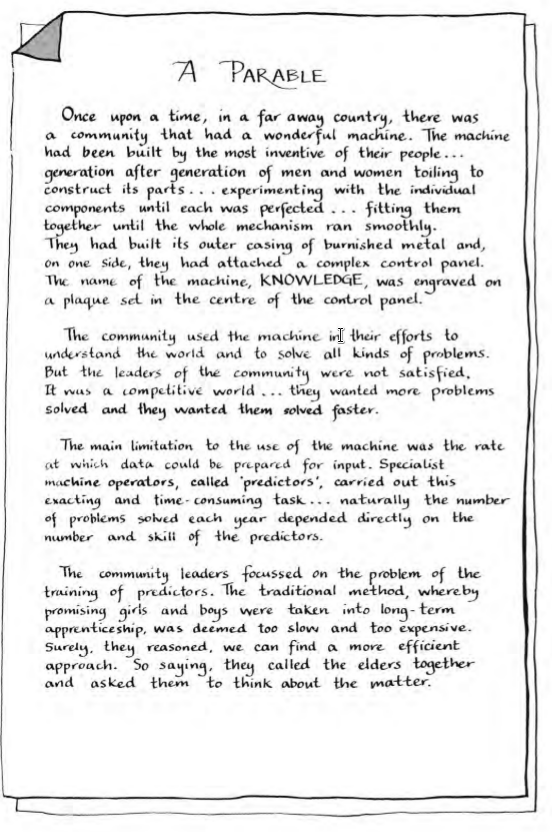 A PARABLE
Once upon a time, in a far away country, there was
a community that had a wonderful machine. The machine
had been built by the most inventive of their people...
generation after generation of men and women toiling to
construct its parts... experimenting with the individual
components until each was perfected... fitting them
together until the whole mechanism ran smoothly.
They had built its outer casing of burnished metal and,
on one side, they had attached a complex control panel.
The name of the machine, KNOWLEDGE, was engraved on
a plaque set in the centre of the control panel.
The community used the machine in their efforts to
understand the world and to solve all kinds of problems.
But the leaders of the community were not satisfied.
It was a competitive world... they wanted more problems
solved and they wanted them solved faster.
The main limitation to the use of the machine was the rate
at which data could be prepared for input. Specialist
machine operators, called 'predictors', carried out this
exacting and time-consuming task... naturally the number
of problems solved each year depended directly on the
number and skill of the predictors.
The community leaders focussed on the problem of the
training of predictors. The traditional method, whereby
promising girls and boys were taken into long-term
apprenticeship, was deemed too slow and too expensive.
Surely, they reasoned, we can find a more efficient
approach. So saying, they called the elders together
and asked them to think about the matter.